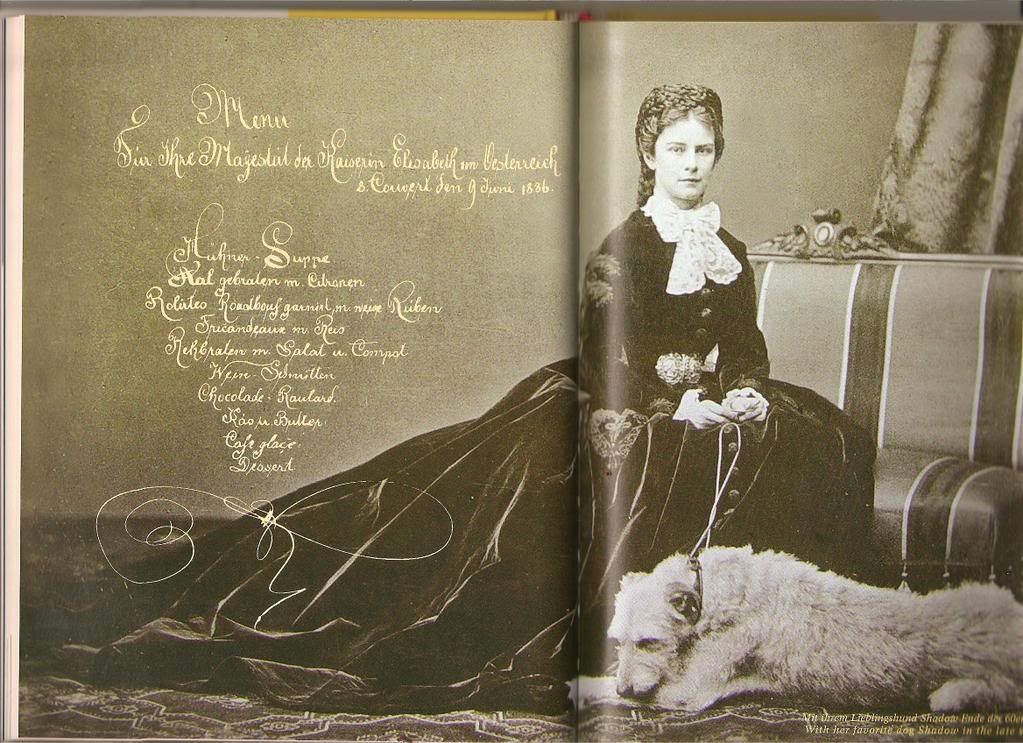 Menu
Für Ihre Majestät der Kaiserin Elisabeth von Oesterreich
s. Couvert den 9 Juni 1886.
Hühner-Suppe
Aal gebraten m. Citronen
garnirt, m. weise Rüben
Fricandeaux m. Reis
Rehbraten m. Salat u. Compot
Wein-Schnitten
Chocolade-Roulard.
Käs u. Butter
Cafe glaçe
Dessert
Mit ihrem Lieblingshund Shadow Ende der 60er
With her favorite dog Shadow in the late